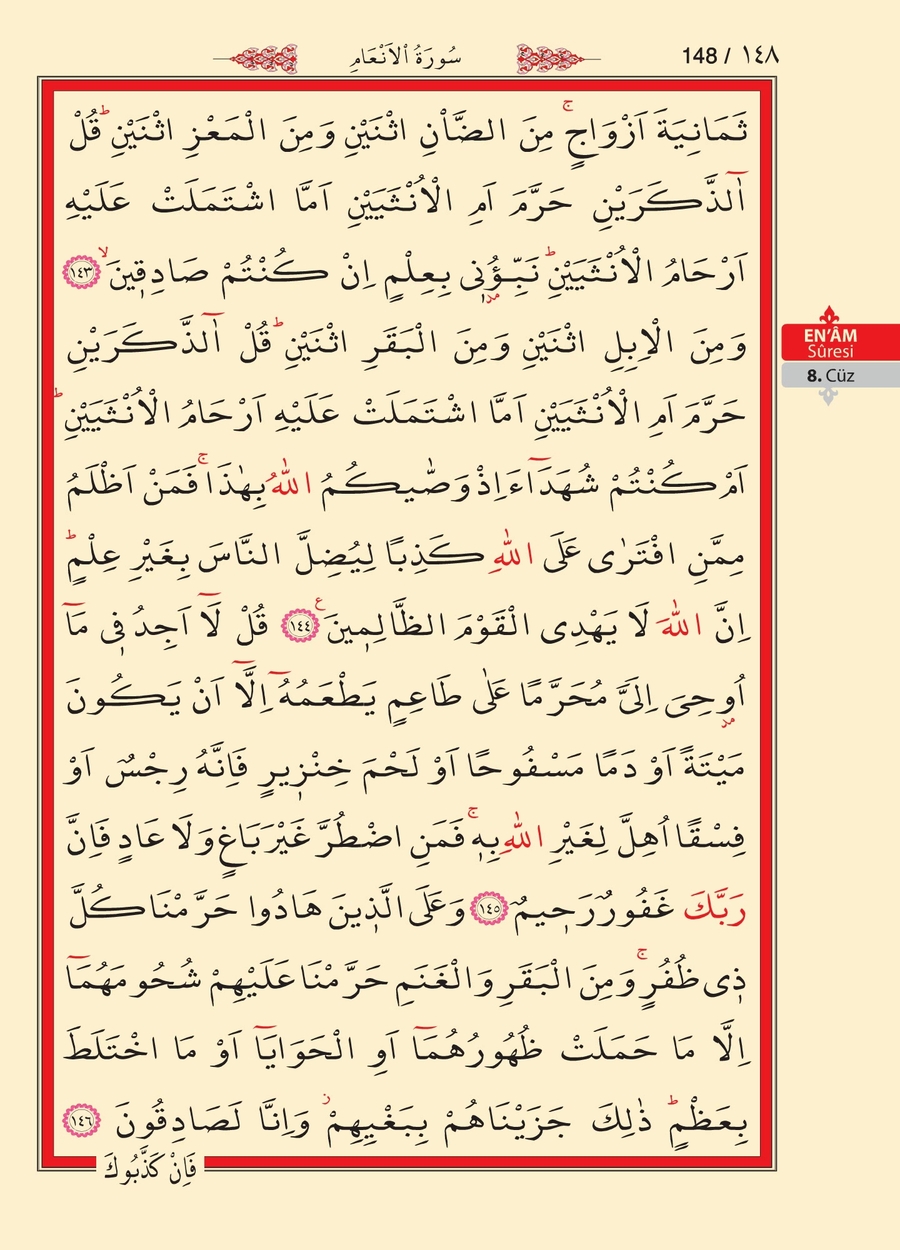 سُورَةُ الْاَنْعَامِ
148 / ١٤٨
ثَمَانِيَةَ اَزْوَاجٍۚ مِنَ الضَّاْنِ اثْنَيْنِ وَمِنَ الْمَعْزِ اثْنَيْنِۜ قُلْ
آٰلذَّكَرَيْنِ حَرَّمَ اَمِ الْاُنْثَيَيْنِ اَمَّا اشْتَمَلَتْ عَلَيْهِ
اَرْحَامُ الْاُنْثَيَيْنِۜ نَبِّؤُ۫ن۪ى بِعِلْمٍ اِنْ كُنْتُمْ صَادِق۪ينَۙ ﴿١٤٣﴾
وَمِنَ الْاِبِلِ اثْنَيْنِ وَمِنَ الْبَقَرِ اثْنَيْنِۜ قُلْ آٰلذَّكَرَيْنِ
حَرَّمَ اَمِ الْاُنْثَيَيْنِ اَمَّا اشْتَمَلَتْ عَلَيْهِ اَرْحَامُ الْاُنْثَيَيْنِۜ
اَمْ كُنْتُمْ شُهَدَٓاءَ اِذْ وَصّٰيكُمُ اللّٰهُ بِهٰذَاۚ فَمَنْ اَظْلَمُ
مِمَّنِ افْتَرٰى عَلَى اللّٰهِ كَذِبًا لِيُضِلَّ النَّاسَ بِغَيْرِ عِلْمٍۜ
اِنَّ اللّٰهَ لَا يَهْدِى الْقَوْمَ الظَّالِم۪ينَ۟ ﴿١٤٤﴾ قُلْ لَٓا اَجِدُ ف۪ى مَٓا
اُو۫حِىَ اِلَىَّ مُحَرَّمًا عَلٰى طَاعِمٍ يَطْعَمُهُٓ اِلَّٓا اَنْ يَكُونَ
مَيْتَةً اَوْ دَمًا مَسْفُوحًا اَوْ لَحْمَ خِنْز۪يرٍ فَاِنَّهُ رِجْسٌ اَوْ
فِسْقًا اُهِلَّ لِغَيْرِ اللّٰهِ بِه۪ۚ فَمَنِ اضْطُرَّ غَيْرَ بَاغٍ وَلَا عَادٍ فَاِنَّ
رَبَّكَ غَفُورٌ رَح۪يمٌ ﴿١٤٥﴾ وَعَلَى الَّذ۪ينَ هَادُوا حَرَّمْنَا كُلَّ
ذ۪ى ظُفُرٍۚ وَمِنَ الْبَقَرِ وَالْغَنَمِ حَرَّمْنَا عَلَيْهِمْ شُحُومَهُمَٓا
اِلَّا مَا حَمَلَتْ ظُهُورُهُمَٓا اَوِ الْحَوَايَٓا اَوْ مَا اخْتَلَطَ
بِعَظْمٍۜ ذٰلِكَ جَزَيْنَاهُمْ بِبَغْيِهِمْۘ وَاِنَّا لَصَادِقُونَ ﴿١٤٦﴾
فَاِنْ كَذَّبُوكَ
EN'ÂM
Sûresi
8. Cüz